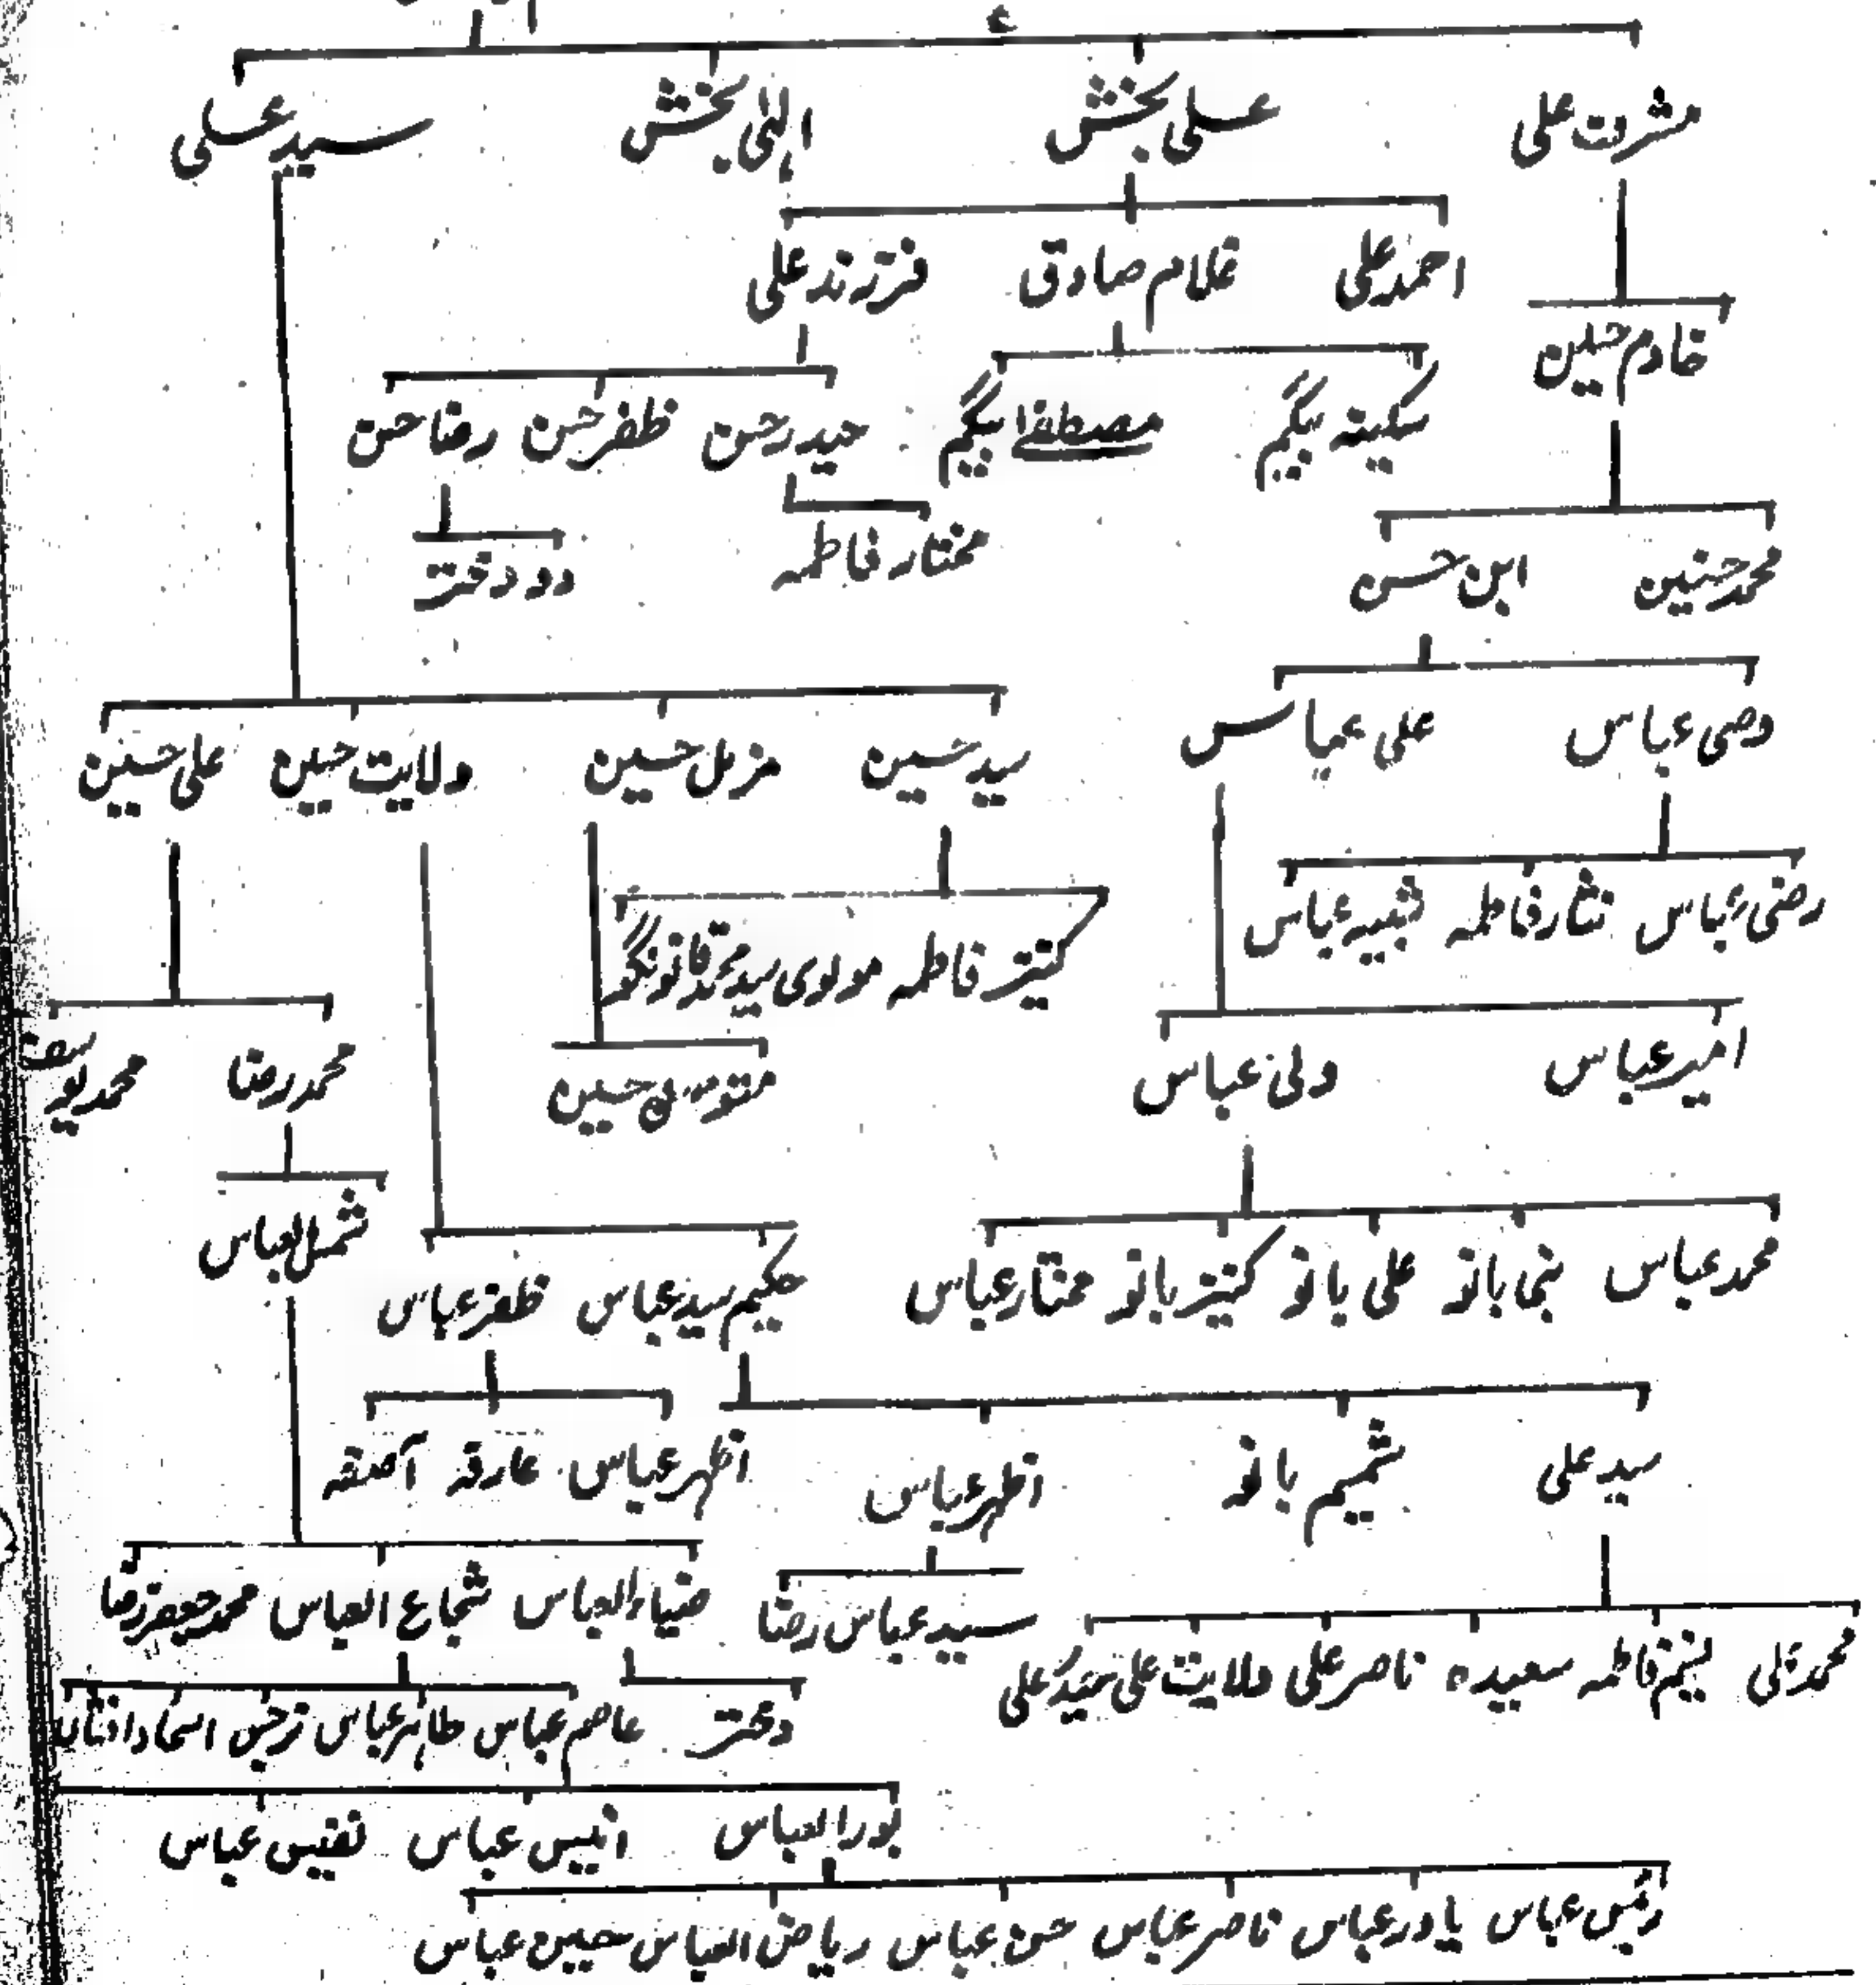 مشرف علی علی بخش الٰہی بخش سید علی
احمد علی غلام صادق فرزند علی
خادم حسین
سکینہ بیگم مصطفےٰ بیگم حیدر حسن ظفر حسن رضا حسن
محمد حسنین ابن حسن مختار فاطمہ دو دختر
وصی عباس علی عباس
سید حسین مزمل حسین ولایت حسین علی حسین
رضی عباس نثار فاطمہ شبیہ عباس
کنیز فاطمہ مولوی سید محمد قانونگو
امیر عباس ولی عباس
حسین محمد رضا محمد یوسف
شمس العباس
محمد عباس بانو علی بانو کنیز بانو مختار عباس
حکیم سید عباس ظفر عباس
سید علی شمیم بانو اظہر عباس
اظہر عباس عارفہ آصفہ
سید عباس رضا
ضیاء العباس شجاع العباس محمد جعفر رضا
محمد علی فاطمہ سعیدہ ناصر علی ولایت علی علی
دختر عاصم عباس طاہر عباس نرجس اسماء افشاں
نور العباس انیس عباس نفیس عباس
رئیس عباس یاور عباس ناصر عباس حسن عباس ریاض العباس حسین عباس